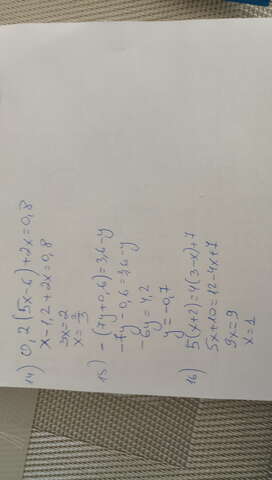 14) 0,2(5x-6)+2x=0,8
x-1,2+2x=0,8
3x=2
x=2/3
15) -(7y+0,6)=3,6-y
-7y-0,6=3,6-y
-6y=4,2
y=-0,7
16) 5(x+2)=4(3-x)+7
5x+10=12-4x+7
9x=9
x=1